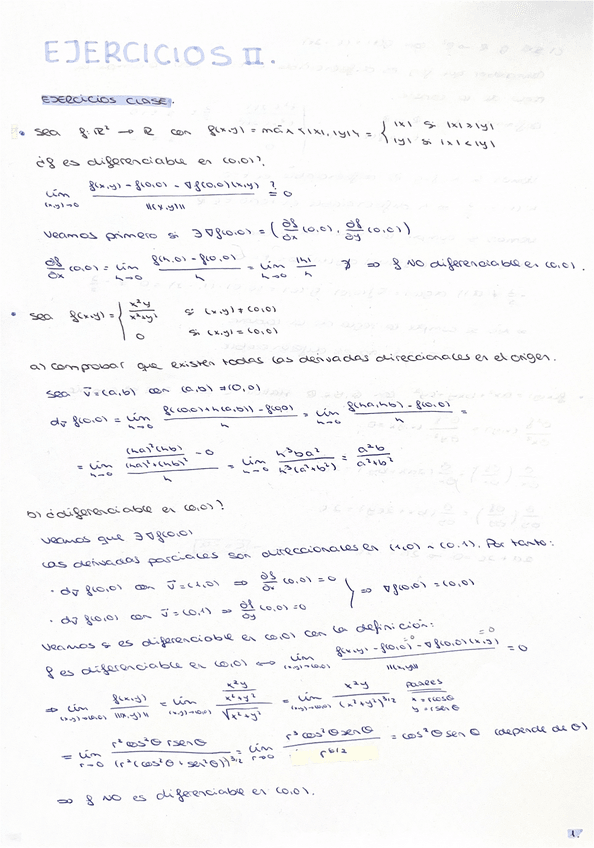 EJERCICIOS II.
EJERCICIOS CLASE.
• Sea f: ℝ² → ℝ con f(x,y) = máx {|x|, |y|} = { |x| si |x| ≥ |y|
|y| si |x| < |y|
¿f es diferenciable en (0,0)?
lím (x,y)→0 (f(x,y) - f(0,0) - ∇f(0,0)(x,y)) / ||(x,y)|| =? 0
Veamos primero si ∃ ∇f(0,0) = (∂f/∂x (0,0), ∂f/∂y (0,0))
∂f/∂x (0,0) = lím h→0 (f(h,0) - f(0,0)) / h = lím h→0 |h|/h ∄ ⇒ f NO diferenciable en (0,0).
• Sea f(x,y) = { x²y / (x²+y²) si (x,y) ≠ (0,0)
0 si (x,y) = (0,0)
a) Comprobar que existen todas las derivadas direccionales en el origen.
Sea v⃗ = (a,b) con (a,b) ≠ (0,0)
d_v⃗ f(0,0) = lím h→0 (f((0,0)+h(a,b)) - f(0,0)) / h = lím h→0 (f(ha,hb) - f(0,0)) / h =
= lím h→0 ((ha)²(hb) / ((ha)²+(hb)²) - 0) / h = lím h→0 h³ba² / h³(a²+b²) = a²b / (a²+b²)
b) ¿diferenciable en (0,0)?
Veamos que ∃ ∇f(0,0)
Las derivadas parciales son direccionales en (1,0) ~ (0,1). Por tanto:
· d_v⃗ f(0,0) con v⃗ = (1,0) ⇒ ∂f/∂x (0,0) = 0
⇒ ∇f(0,0) = (0,0)
· d_v⃗ f(0,0) con v⃗ = (0,1) ⇒ ∂f/∂y (0,0) = 0
Veamos si es diferenciable en (0,0) con la definición:
f es diferenciable en (0,0) ⇔ lím (x,y)→(0,0) (f(x,y) - f(0,0)⁼⁰ - ∇f(0,0)(x,y)⁼⁰) / ||(x,y)|| = 0
⇒ lím (x,y)→(0,0) f(x,y) / ||(x,y)|| = lím (x,y)→(0,0) (x²y / (x²+y²)) / √(x²+y²) = lím (x,y)→(0,0) x²y / (x²+y²)^3/2 = polares x = r cosθ y = r senθ
= lím r→0 r² cos²θ r senθ / (r²(cos²θ + sen²θ))^3/2 = lím r→0 r³ cos²θ senθ / r^6/2 = cos²θ sen θ (depende de θ)
⇒ f NO es diferenciable en (0,0).
1.